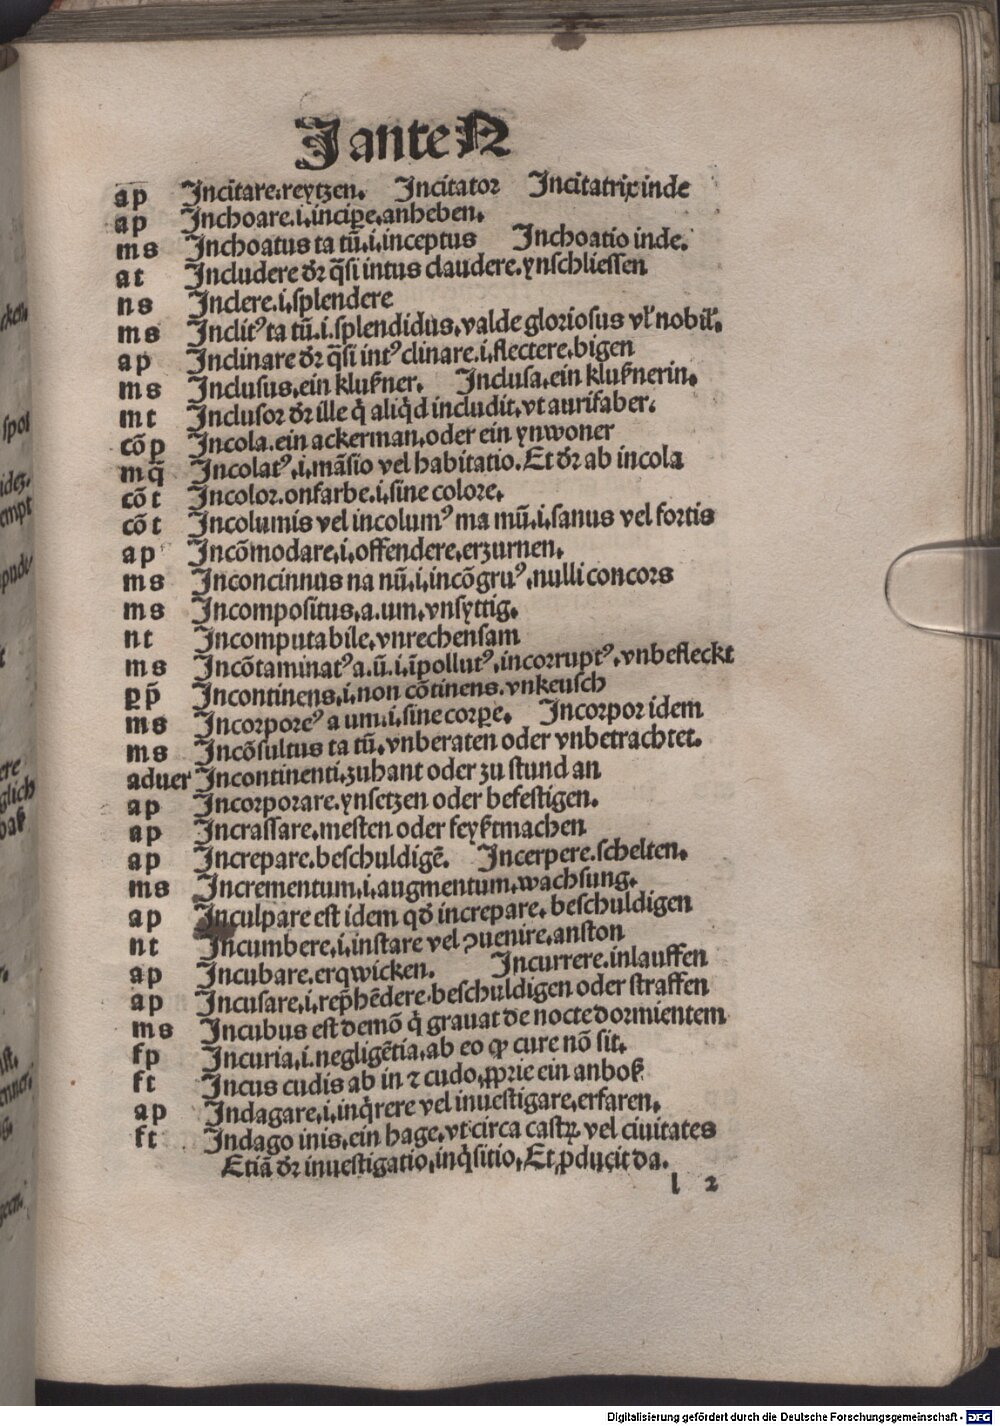 J ante N
a p Incitare.reytzen. Incitator Incitatrix inde
a p Inchoare.i.incipe.anheben.
m s Inchoatus ta tū.i.inceptus Inchoatio inde.
a t Includere dr̄ q̄si intus claudere.ynschliessen
n s Inclere.i.splendere
m s Inclitꝰ ta tū.i.splendidus.valde gloriosus vł nobił.
a p Inclinare dr̄ q̄si intꝰ clinare.i.flectere.bigen
m s Inclusus.ein kluſzner. Inclusa.ein kluſznerin.
m t Inclusor dr̄ ille q̇ aliq̇d includit.vt aurifaber.
cō p Incola.ein ackerman.oder ein ynwoner
m q̄ Incolatꝰ.i.māsio vel habitatio.Et dr̄ ab incola
cō t Incolor.onfarbe.i.sine colore.
cō t Incolumis vel incolumꝰ ma mū.i.sanus vel fortis
a p Incōmodare.i.offendere.erzurnen.
m s Inconcinnus na nū.i.incōgruꝰ.nulli concors
m s Incompositus.a.um.vnsyttig.
n t Incomputabile.vnrechensam
m s Incōtaminatꝰ a.ū.i.īpollutꝰ.incorruptꝰ.vnbefleckt
ꝑ p̄ Incontinens.i.non cōtinens.vnkeusch
m s Incorporeꝰ a um.i.sine corꝑe. Incorpor idem
m s Incōsultus ta tū.vnberaten oder vnbetrachtet.
aduer Incontinenti.zuhant oder zu stund an
a p Incorporare.ynsetzen oder befestigen.
a p Incrassare.mesten oder feyſztmachen
a p Increpare.beschuldigē. Incerpere.schelten.
m s Incrementum.i.augmentum.wachsung.
a p Inculpare est idem qd̄ increpare.beschuldigen
n t Incumbere.i.instare vel ꝯuenire.anston
a p Incubare.erqwicken. Incurrere.inlauffen
a p Incusare.i.rep̄hēdere.beschuldigen oder straffen
m s Incubus est demō q̇ grauat de nocte dormientem
f p Incuria.i.negligētia.ab eo ꝙ cure nō sit.
f t Incus cudis ab in ⁊ cudo.ꝓprie ein anboſz
a p Indagare.i.inq̇rere vel inuestigare.erfaren.
f t Indago inis.ein hage.vt circa castꝝ vel ciuitates
Etiā dr̄ inuestigatio.inq̇sitio.Et ꝓducit da.
l 2
Digitalisierung gefördert durch die Deutsche Forschungsgemeinschaft - DFG